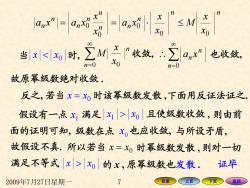 |aₙxⁿ| = |aₙx₀ⁿ xⁿ/x₀ⁿ| = |aₙx₀ⁿ| · |x/x₀|ⁿ ≤ M |x/x₀|ⁿ
当 |x| < |x₀| 时, ∑_{n=0}^{∞} M |x/x₀|ⁿ 收敛, ∴ ∑_{n=0}^{∞} |aₙxⁿ| 也收敛,
故原幂级数绝对收敛 .
反之, 若当 x = x₀ 时该幂级数发散 ,下面用反证法证之.
假设有一点 x₁ 满足 |x₁| > |x₀| 且使级数收敛 , 则由前
面的证明可知, 级数在点 x₀ 也应收敛, 与所设矛盾,
故假设不真. 所以若当 x = x₀ 时幂级数发散 , 则对一切
满足不等式 |x| > |x₀| 的 x , 原幂级数也发散 . 证毕
2009年7月27日星期一
7